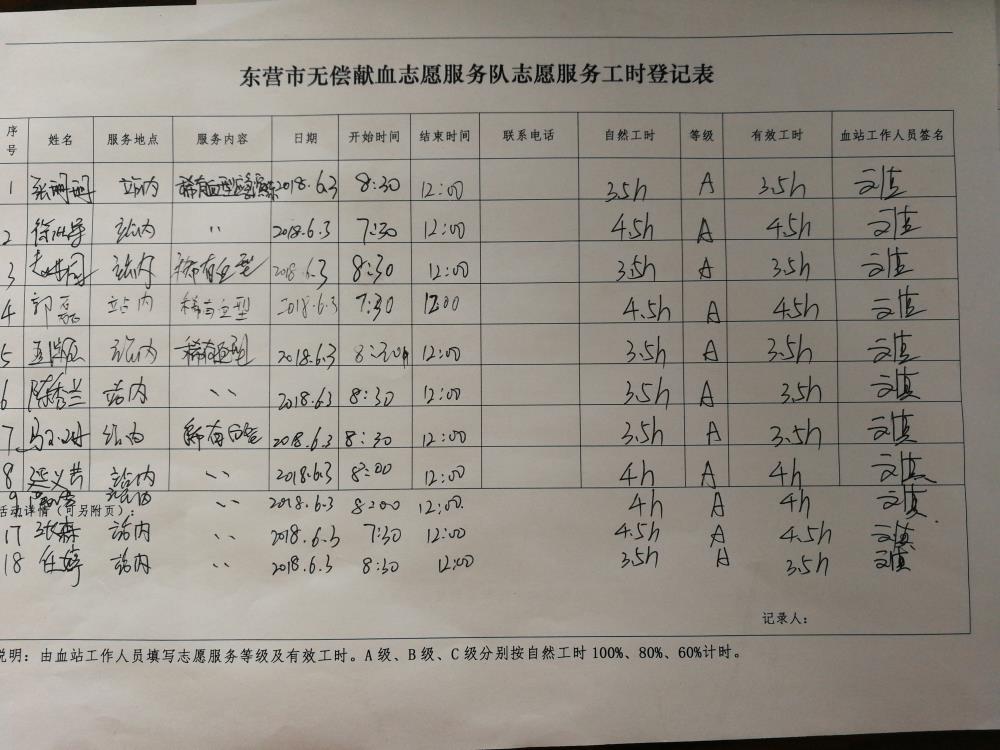 东营市无偿献血志愿服务队志愿服务工时登记表
序号 姓名 服务地点 服务内容 日期 开始时间 结束时间 联系电话 自然工时 等级 有效工时 血站工作人员签名
1 张珊珊 站内 稀有血型 2018.6.3 8:30 12:00 3.5h A 3.5h
2 站内 〃 2018.6.3 7:30 12:00 4.5h A 4.5h
3 站内 稀有血型 2018.6.3 8:30 12:00 3.5h A 3.5h
4 郭磊 站内 稀有血型 2018.6.3 7:30 12:00 4.5h A 4.5h
5 站内 稀有血型 2018.6.3 8:30 12:00 3.5h A 3.5h
6 陈秀兰 站内 〃 2018.6.3 8:30 12:00 3.5h A 3.5h
7 站内 稀有血型 2018.6.3 8:30 12:00 3.5h A 3.5h
8 站内 〃 2018.6.3 8:00 12:00 4h A 4h
9 站内 〃 2018.6.3 8:00 12:00 4h A 4h
活动详情（可另附页）：
17 张森 站内 〃 2018.6.3 7:30 12:00 4.5h A 4.5h
18 任婷 站内 〃 2018.6.3 8:30 12:00 3.5h A 3.5h
记录人：
说明：由血站工作人员填写志愿服务等级及有效工时。A级、B级、C级分别按自然工时100%、80%、60%计时。